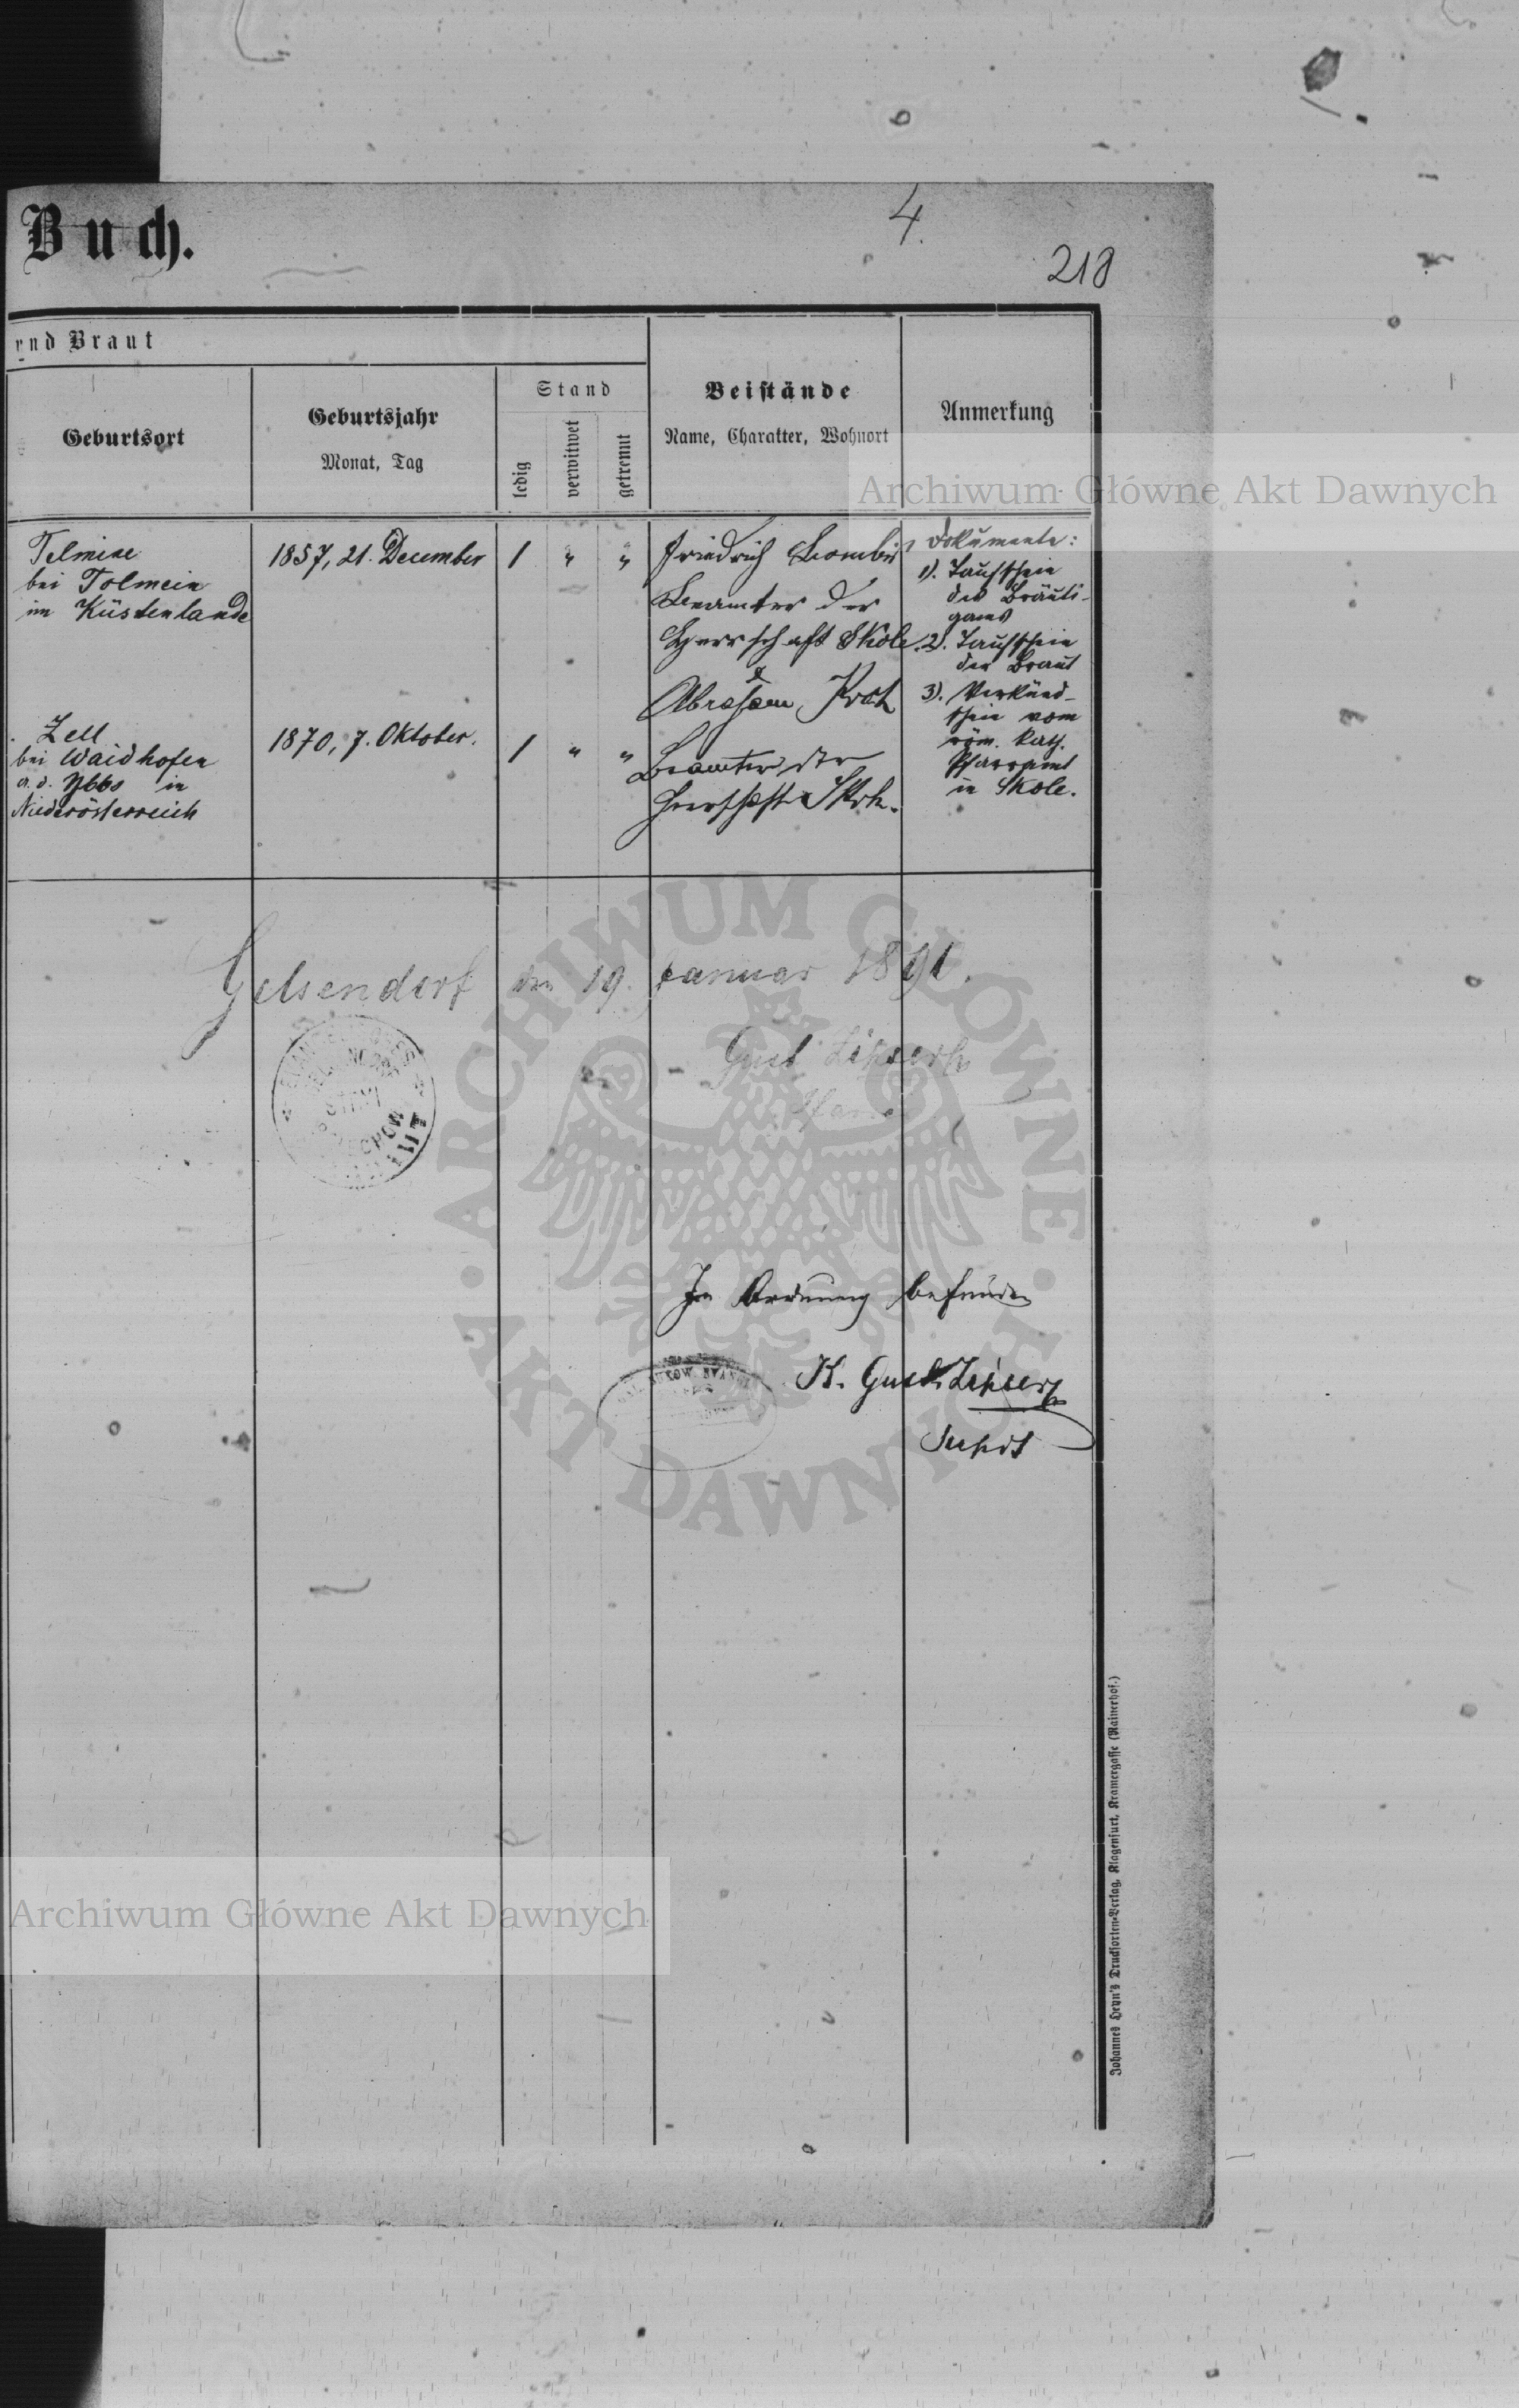 Buch.
4.
218
und Braut
Geburtsort
Geburtsjahr
Monat, Tag
Stand
ledig
verwitwet
getrennt
Beistände
Name, Charakter, Wohnort
Anmerkung
Archiwum Główne Akt Dawnych
Telmine
bei Tolmein
im Küstenlande
1857, 21. December
1 " "
Friedrich
Beamter der
Herrschaft Skole.
&
Abraham
Beamter der
Herrschaft Skole.
Dokumente:
1). Taufschein
des Bräuti-
gams
2). Taufschein
der Braut
3). Verkünd-
schein vom
röm. kath.
Pfarramt
in Skole.
Zell
bei Waidhofen
a. d. Ybbs in
Niederösterreich
1870, 7. Oktober.
1 " "
Gelsendorf den 19. Januar 1891.
Gust
In Ordnung befunden
K. Gust.
Supdt
ARCHIWUM GŁÓWNE
AKT DAWNYCH
Archiwum Główne Akt Dawnych
Johannes Heyn's Drucksorten-Verlag, Klagenfurt, Kramergasse (Rainerhof.)